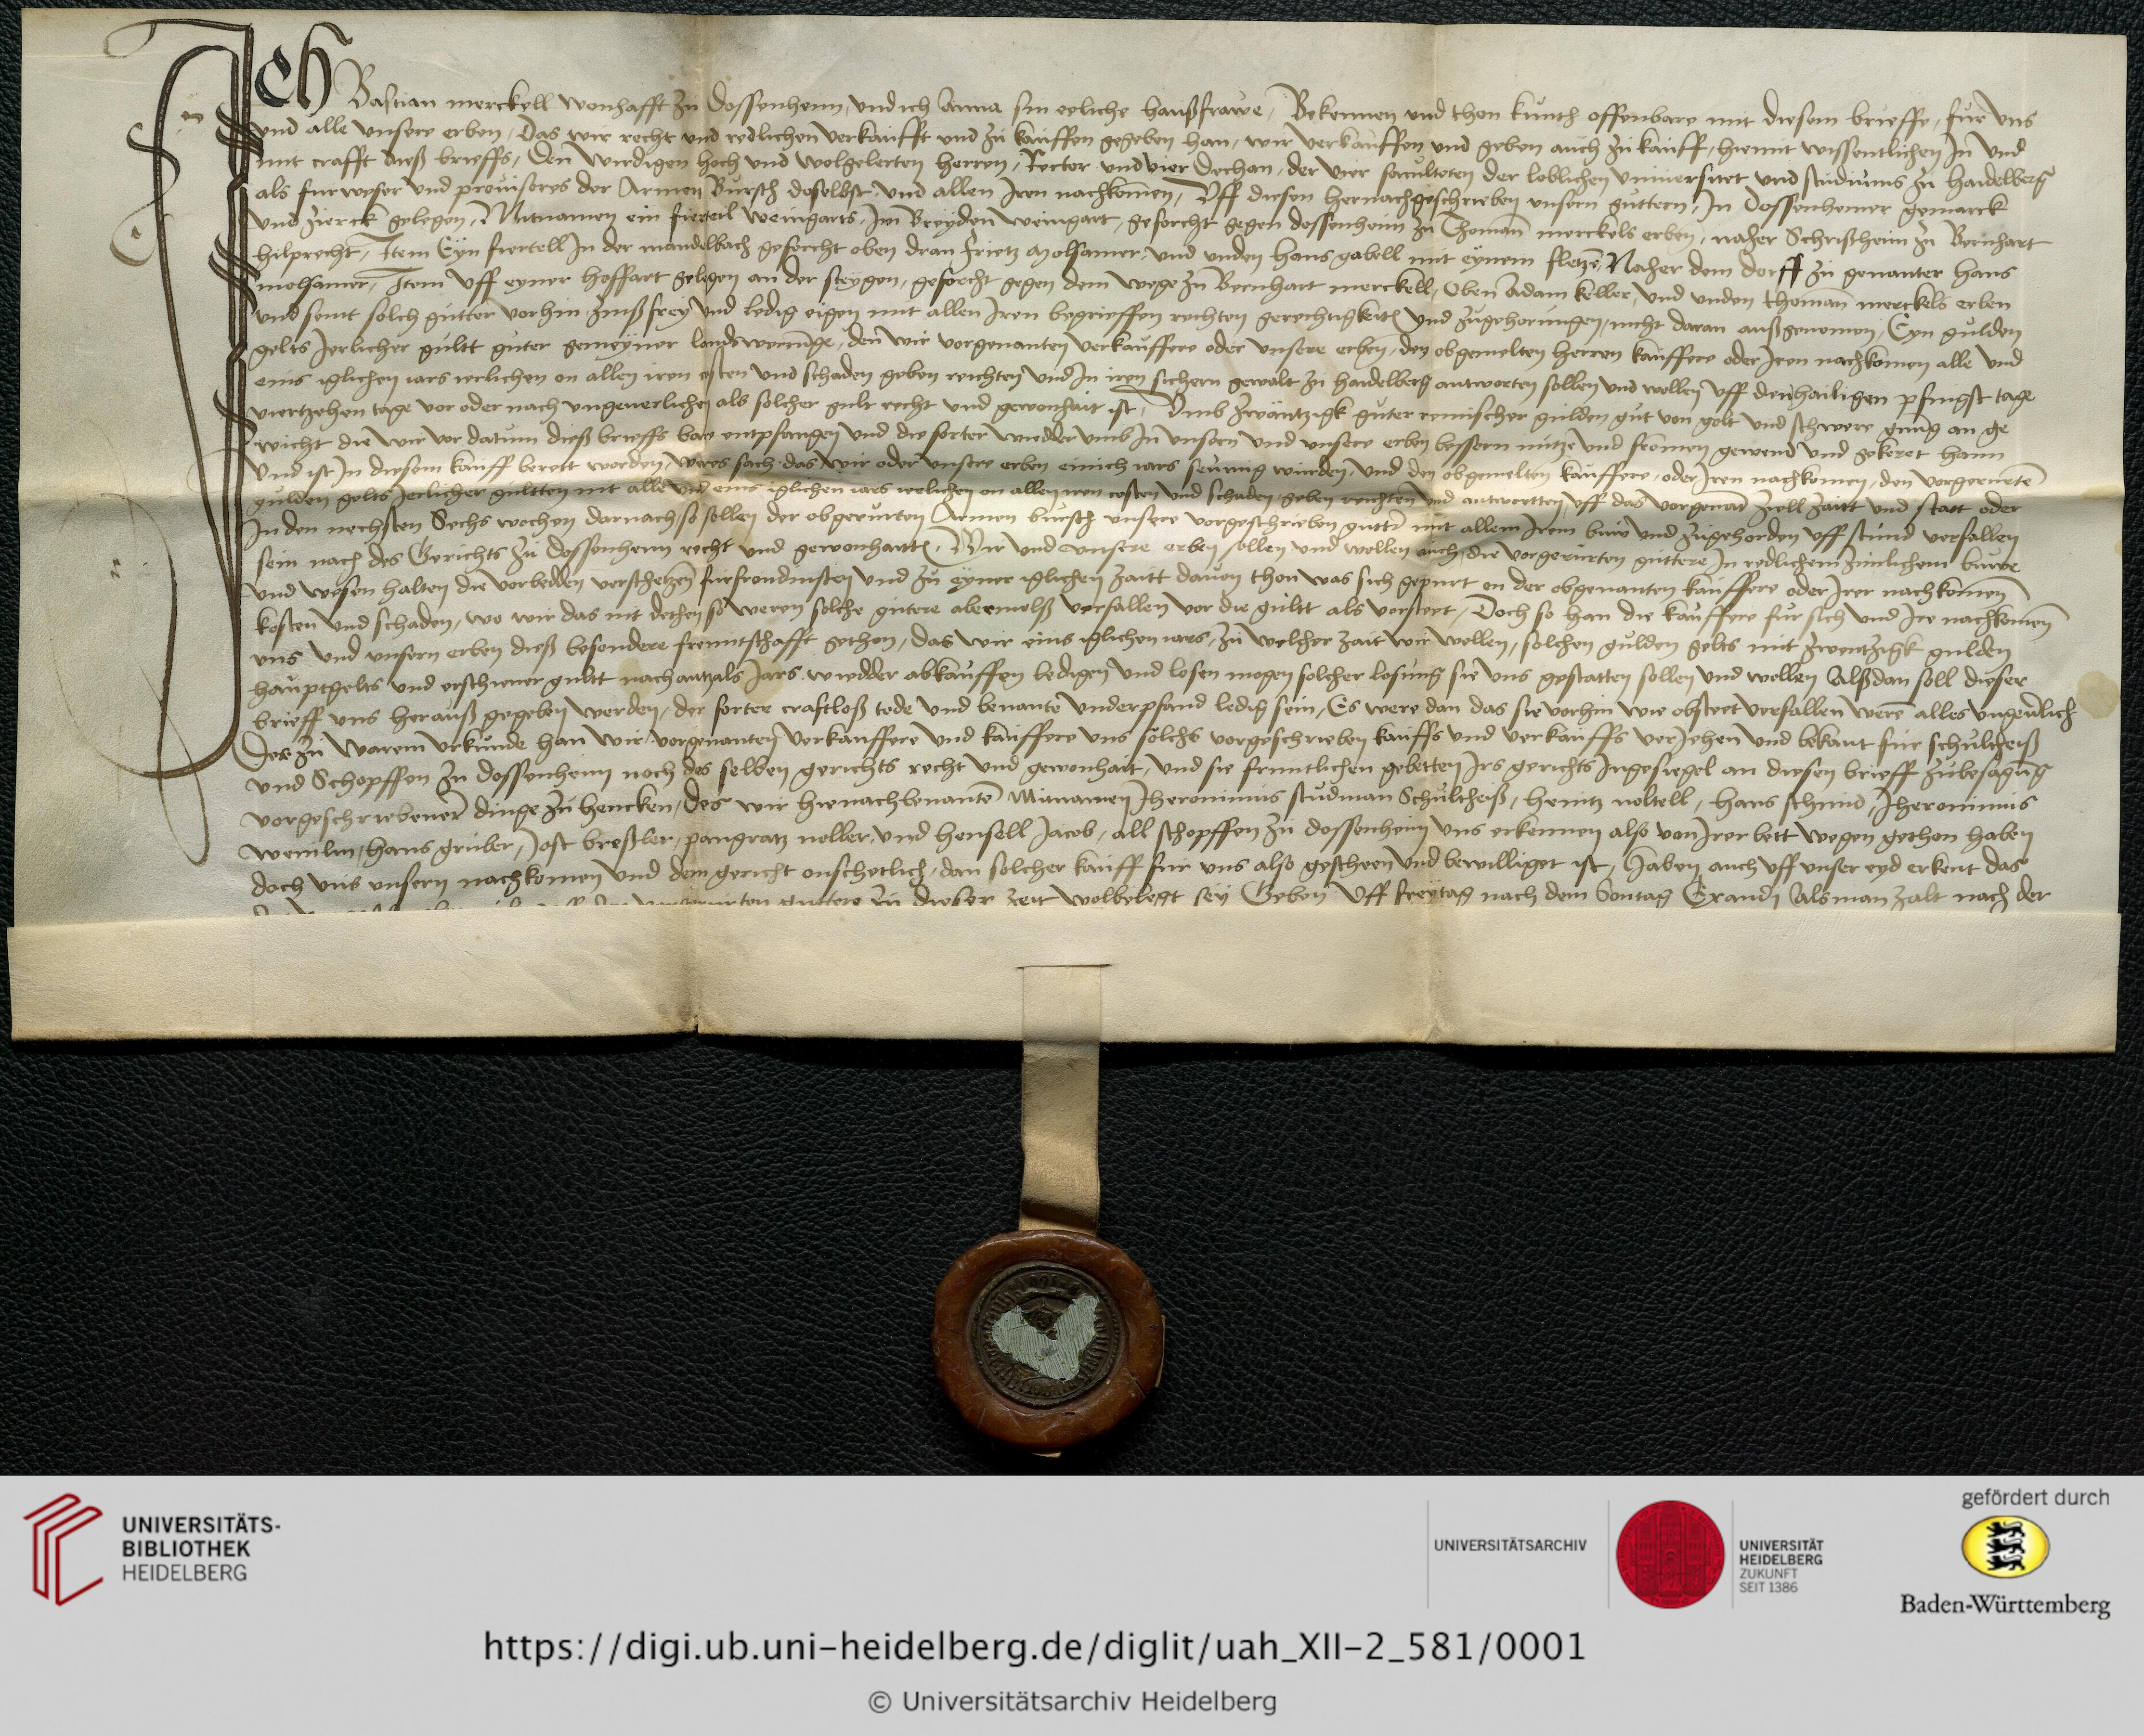 Ich Bastian merckell wonhafft zu Dossenheim, und ich Anna sin eeliche haußfrawe, Bekennen und thon kunth offenbare mit diesem brieffe, fur uns
und alle unsere erben, Das wir recht und redlichen verkaufft und zu kauffen gegeben han, wir verkauffen und geben auch zu kauff, hiemit wissentlichen In und
mit crafft dieß brieffs, Den wirdigen hoch und wolgelerten herren, Rector und vier Dechan, der vier faculteten der loblichen universitet und studiums zu haidelberg
als furweser und provisores der Armen Bursch doselbst und allen Iren nachkomen, Uff diesen hernachgeschrieben unsern guttern, In Dossenhemer gemarck
und zierck gelegen, Mitnamen ein fierteil weingarts, Im Breyden weingart, geforcht gegen dossenheim zu Thoman merckels erben, naher Schrißheim zu Bernhart
hilprecht, Item Eyn fiertell In der mandelbach geforcht oben dran frietz molsamer, und unden hans gabell mit eynem fletzen, Naher dem dorff zu genanter hans
molsamer, Item uff eyner hoffart gelegen an der steygen, geforcht gegen dem wege zu Bernhart merckell, Oben Adam keller, und unden thoman merckels erben
und seint solch gutter vorhin zinßfrey und ledig eigen mit allen Iren begrieffen rechten gerechtigkeit und zugehorungen, nicht daran außgenomen, Eyn gulden
gelts Jerlicher gultt guter gemeyner landswerunge, den wir vorgenanten verkauffere oder unsere erben, den obgemelten herren kauffere oder Iren nachkomen alle und
eins iglichen iars ierlichen on allen iren costen und schaden geben reichten und In iren sichern gewalt zu haidelberg antworten sollen und wollen uff den hailigen pfingst tage
viertzehen tage vor oder nach ungeuerlichen als solcher gult recht und gewonhait ist, Umb zwantzigk guter reinischer gulden gut von golt und schwere gnug an ge
wicht die wir vor datum dieß brieffs bare entpfangen und die forter wiedder umb In unsern und unsere erben bessern nutze und fromen gewend und gekeret hann
Und ist In diesem kauff berett worden, weres sach das wir oder unsere erben einich iars seumig wurden, und den obgemelten kauffere, oder Iren nachkomen, den vorgerurten
gulden gelts Jerlicher gultten nit alle und eins iglichen iars ierlichen on allen iren costen und schaden geben reichten und antwortten, uff das vorgenant ziell zaitt und statt oder
In den nechsten Sechs wochen darnach so sollen der obgerurten Armen bursch unsere vorgeschrieben gutter mit allem Irem buw und zugehorden uff stund verfallen
sein nach des Gerichts zu dossenheim recht und gewonhait, Wir und unsere erben sollen und wollen auch die vorgerurten guttere In redlichem zimlichem buwe
und wesen halten die vorbedden verschetzen furfrondinsten und zu eyner iglichen zaitt davon thon was sich gepurt on der obgenanten kauffere oder Irer nachkomen
kosten und schaden, wo wir das nit dethen so weren solche gutere abermelß verfallen vor die gultt als vorsteet, Doch so han die kauffere fur sich und Ire nachkomen
uns und unsern erben dieß besondere freuntschafft gethon, das wir eins iglichen iars, zu welcher zait wir wollen, solchen gulden gelts mit zwentzigk gulden
hauptgelts und erschiener gultt nach antzals Jars wiedder abkauffen ledigen und losen mogen solcher losung sie uns gestatten sollen und wollen Alßdan soll dieser
brieff uns herauß gegeben werden, der forter craftloß tode und benante underpfand ledig sein, Es were dan das sie vorhin wie obsteet verfallen were alles ungeuerlich
Des zu warem urkunde han wir vorgenanten verkauffere und kauffere uns solchs vorgeschrieben kauffs und verkauffs verJehen und bekant fur schultheiß
und Schopffen zu dossenheim noch des selben gerichts recht und gewonhait, und sie fruntlichen gebetten Irs gerichts Ingesiegel an diesen brieff zubesagung
vorgeschriebener dinge zu hencken, Des wir hienachbenante Mitnamen Jheronimus studman Schultheiß, heintz noltell, hans schmid, Jheronimus
wemlin, hans gruber, Jost breßler, pangratz noller, und hensell Jacob, all schopffen zu dossenheim uns erkennen also von Irer bett wegen gethon haben
doch uns unsern nachkomen und dem gericht onschetlich, dan solcher kauff fur uns also gescheen und bewilliget ist, Haben auch uff unser eyd erkent das
vorgerurten guttere zu dieser zeit wolbelegt sey Geben Uff freytag nach dem Sontag Exaudi Als man zalt nach der
UNIVERSITÄTS-
BIBLIOTHEK
HEIDELBERG
UNIVERSITÄTSARCHIV
UNIVERSITÄT
HEIDELBERG
ZUKUNFT
SEIT 1386
gefördert durch
Baden-Württemberg
https://digi.ub.uni-heidelberg.de/diglit/uah_XII-2_581/0001
© Universitätsarchiv Heidelberg